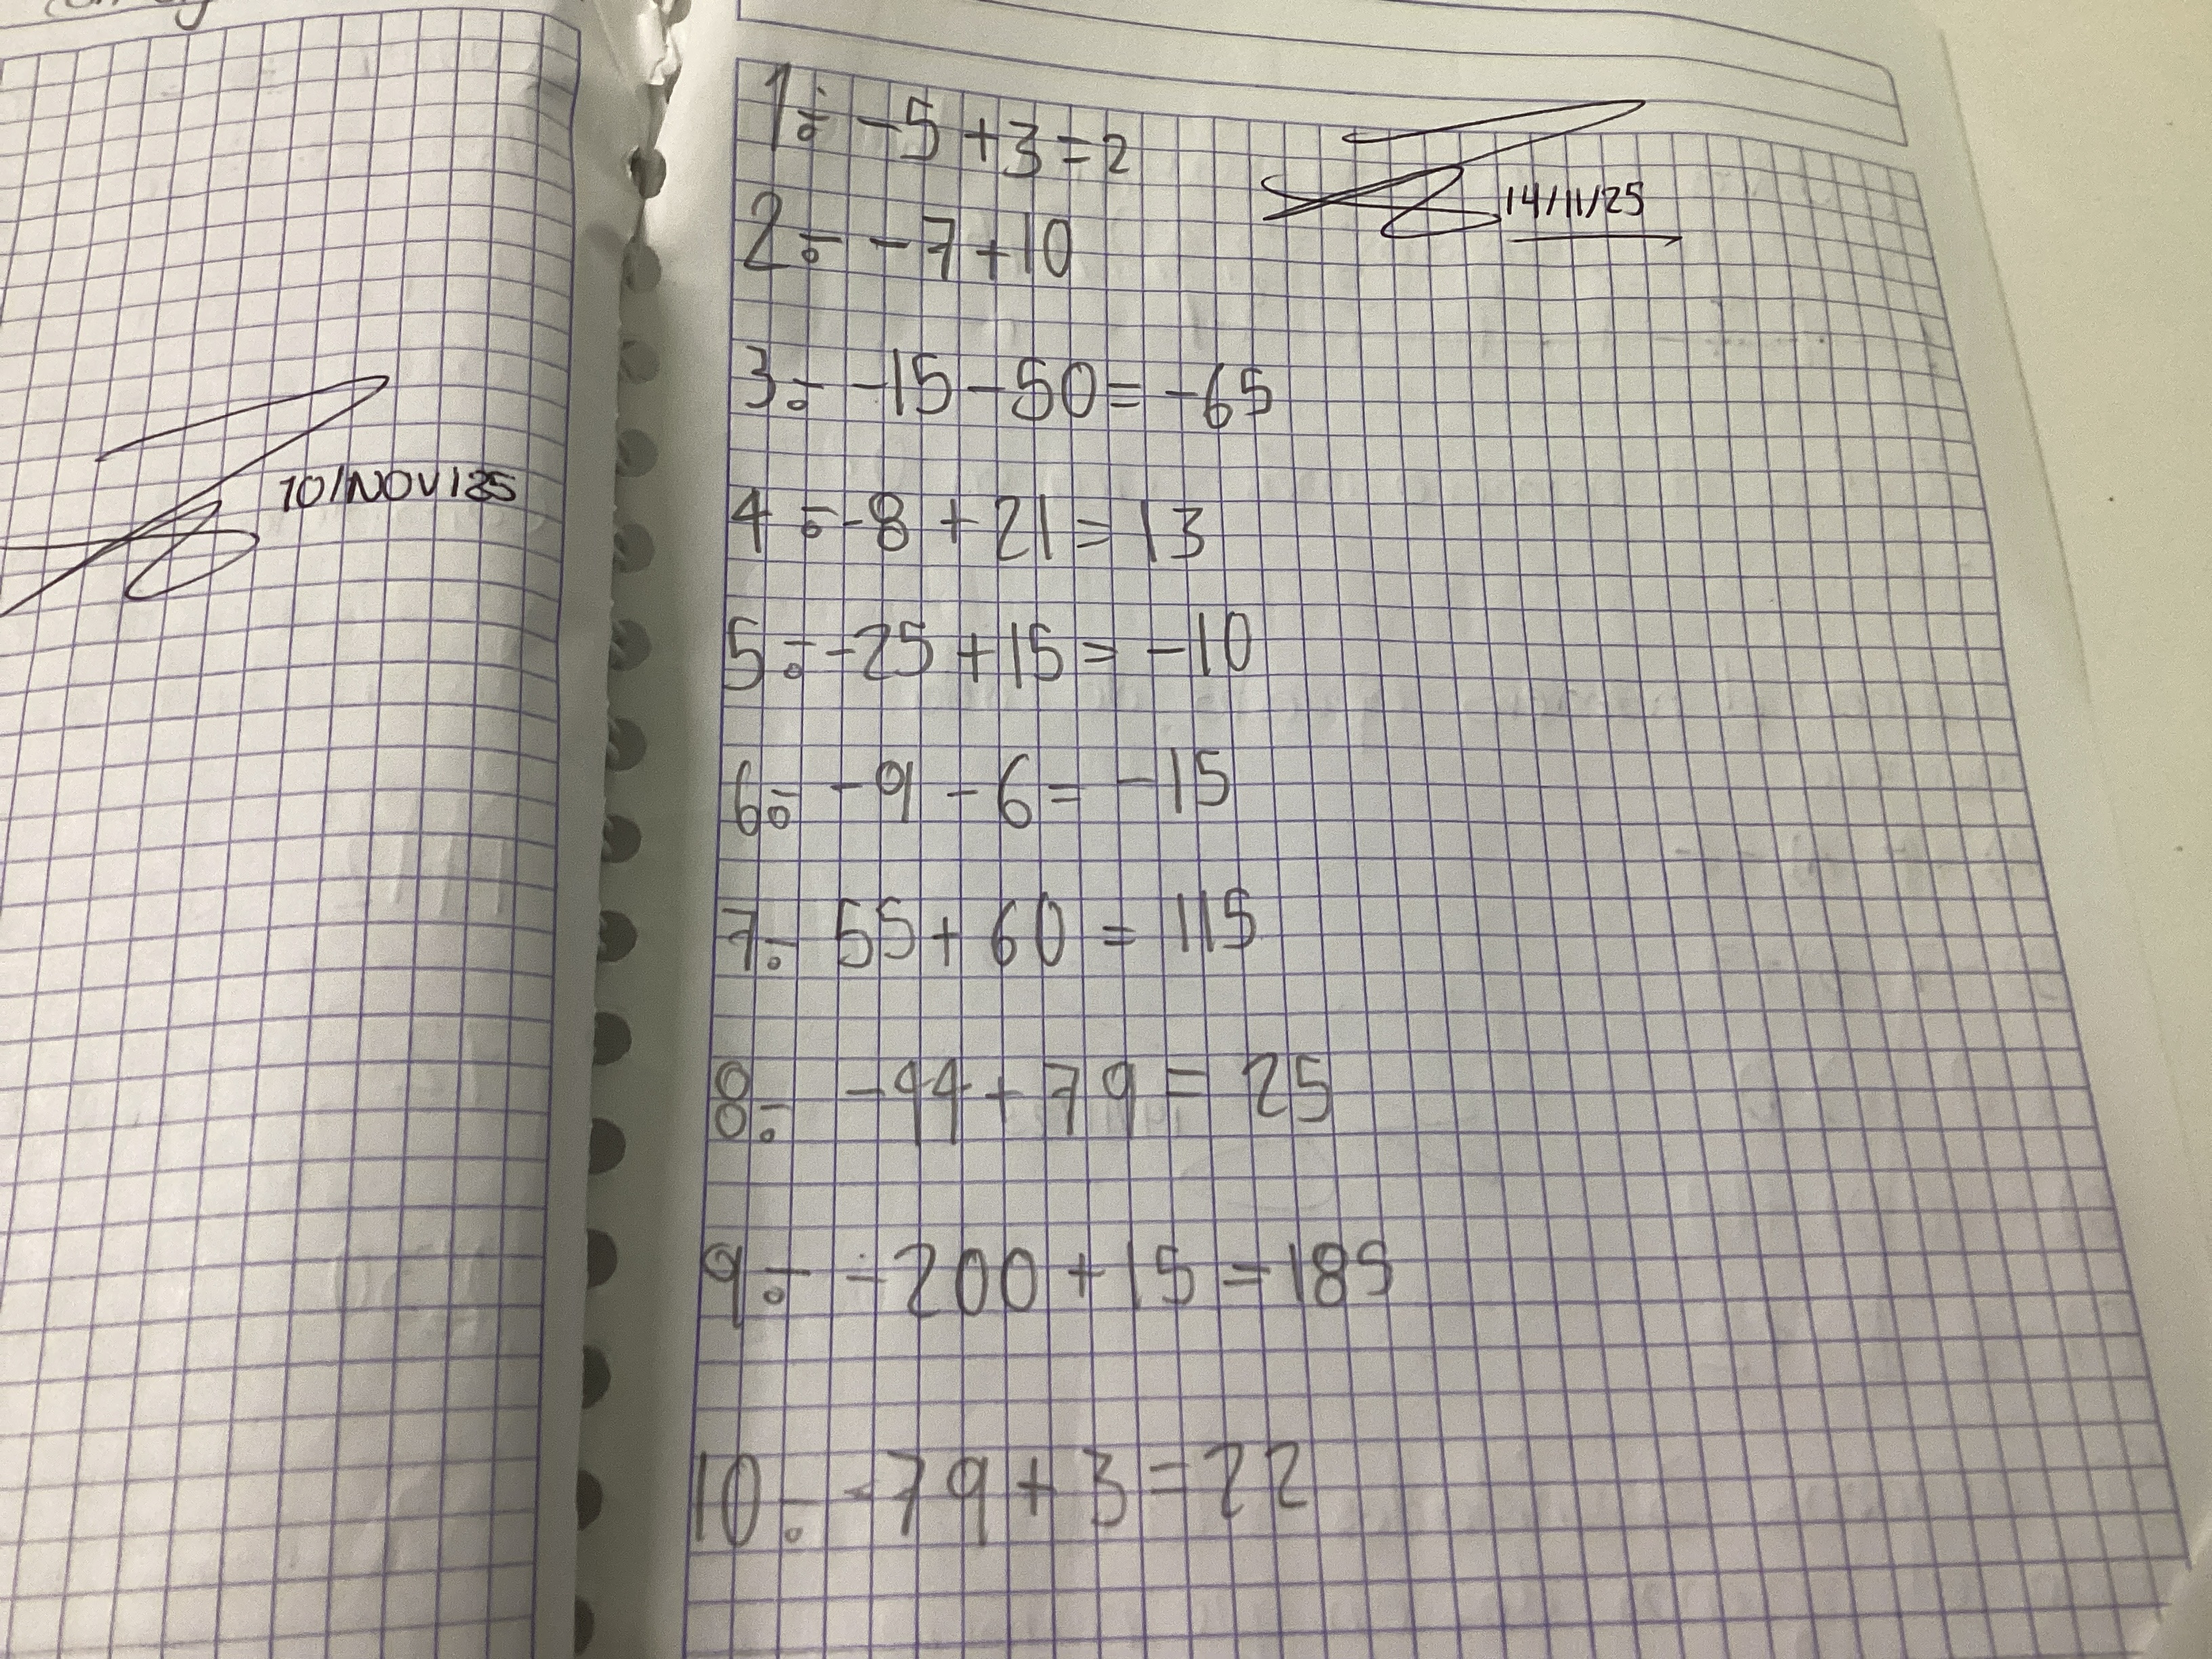 1÷ -5 + 3 = 2
14/11/25
2÷ -7 + 10
3÷ -15 - 50 = -65
10/NOV/25
4÷ -8 + 21 = 13
5÷ -25 + 15 = -10
6÷ -9 - 6 = -15
7÷ 55 + 60 = 115
8÷ -44 + 79 = 25
9÷ -200 + 15 = 185
10÷ -79 + 3 = 22